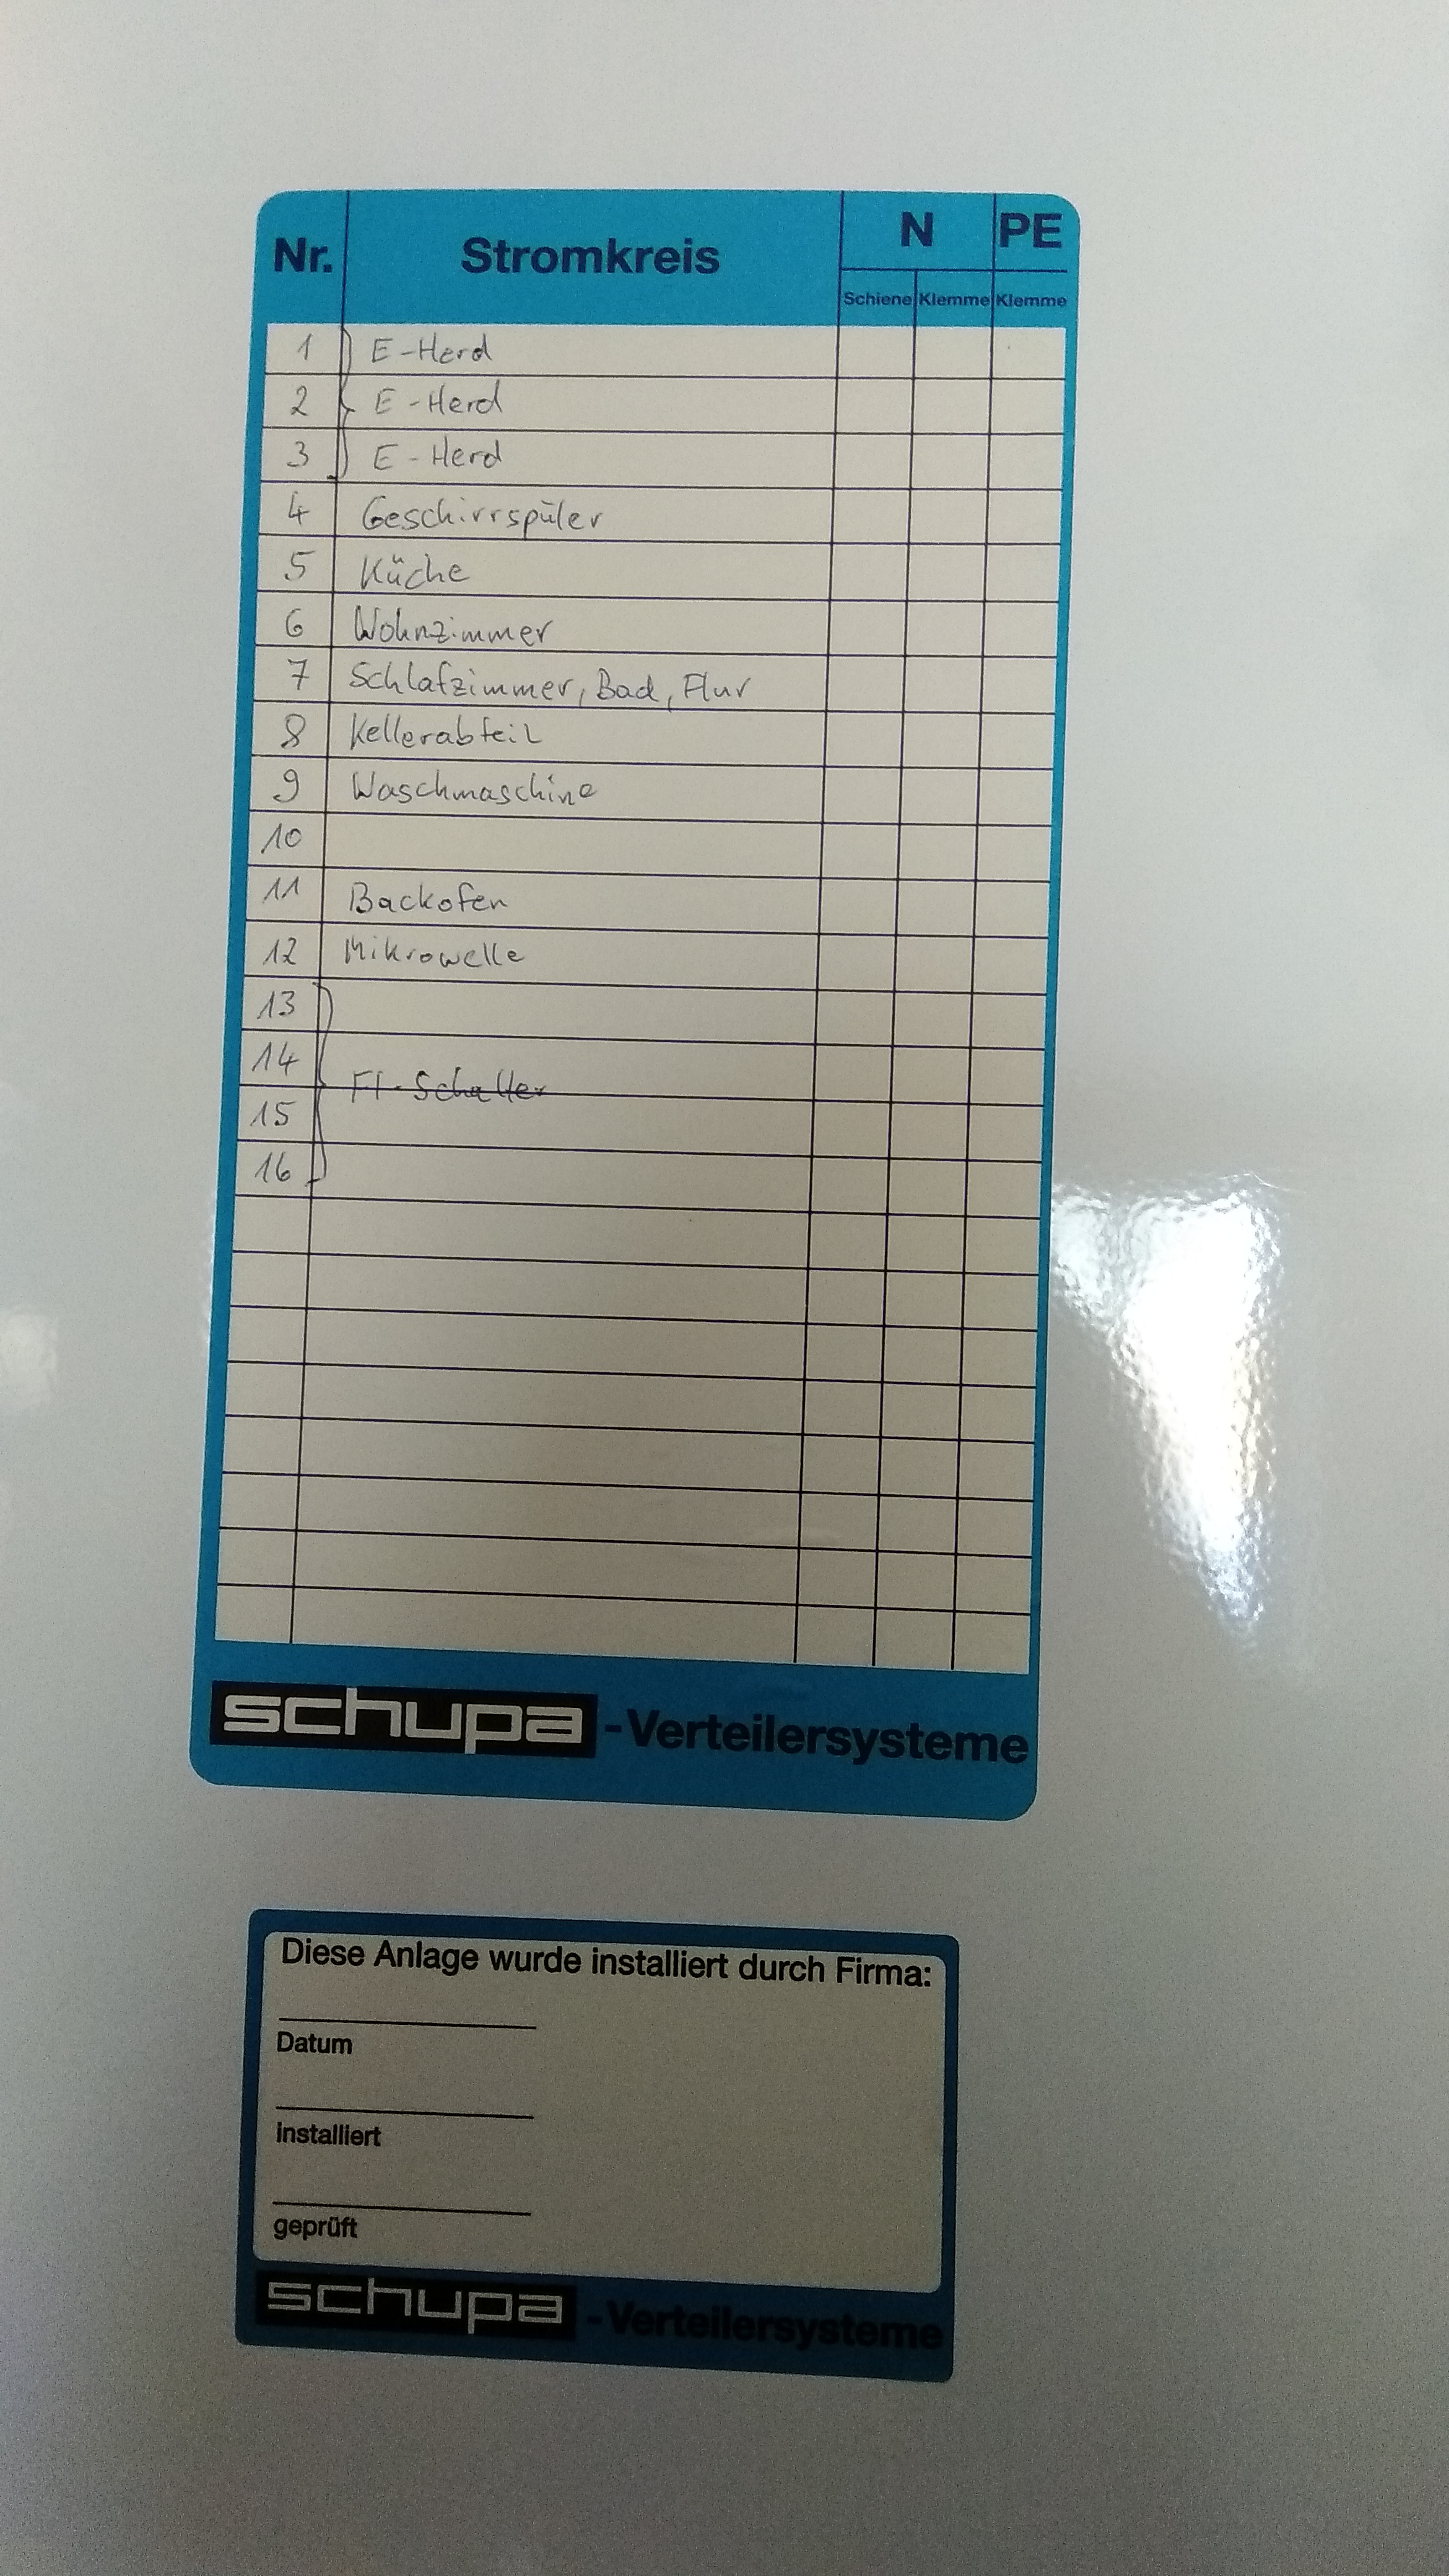 Nr. Stromkreis N PE
Schiene Klemme Klemme
1 E-Herd
2 E-Herd
3 E-Herd
4 Geschirrspüler
5 Küche
6 Wohnzimmer
7 Schlafzimmer, Bad, Flur
8 Kellerabteil
9 Waschmaschine
10
11 Backofen
12 Mikrowelle
13
14
FI-Schalter
15
16
schupa -Verteilersysteme
Diese Anlage wurde installiert durch Firma:
Datum
installiert
geprüft
schupa -Verteilersysteme